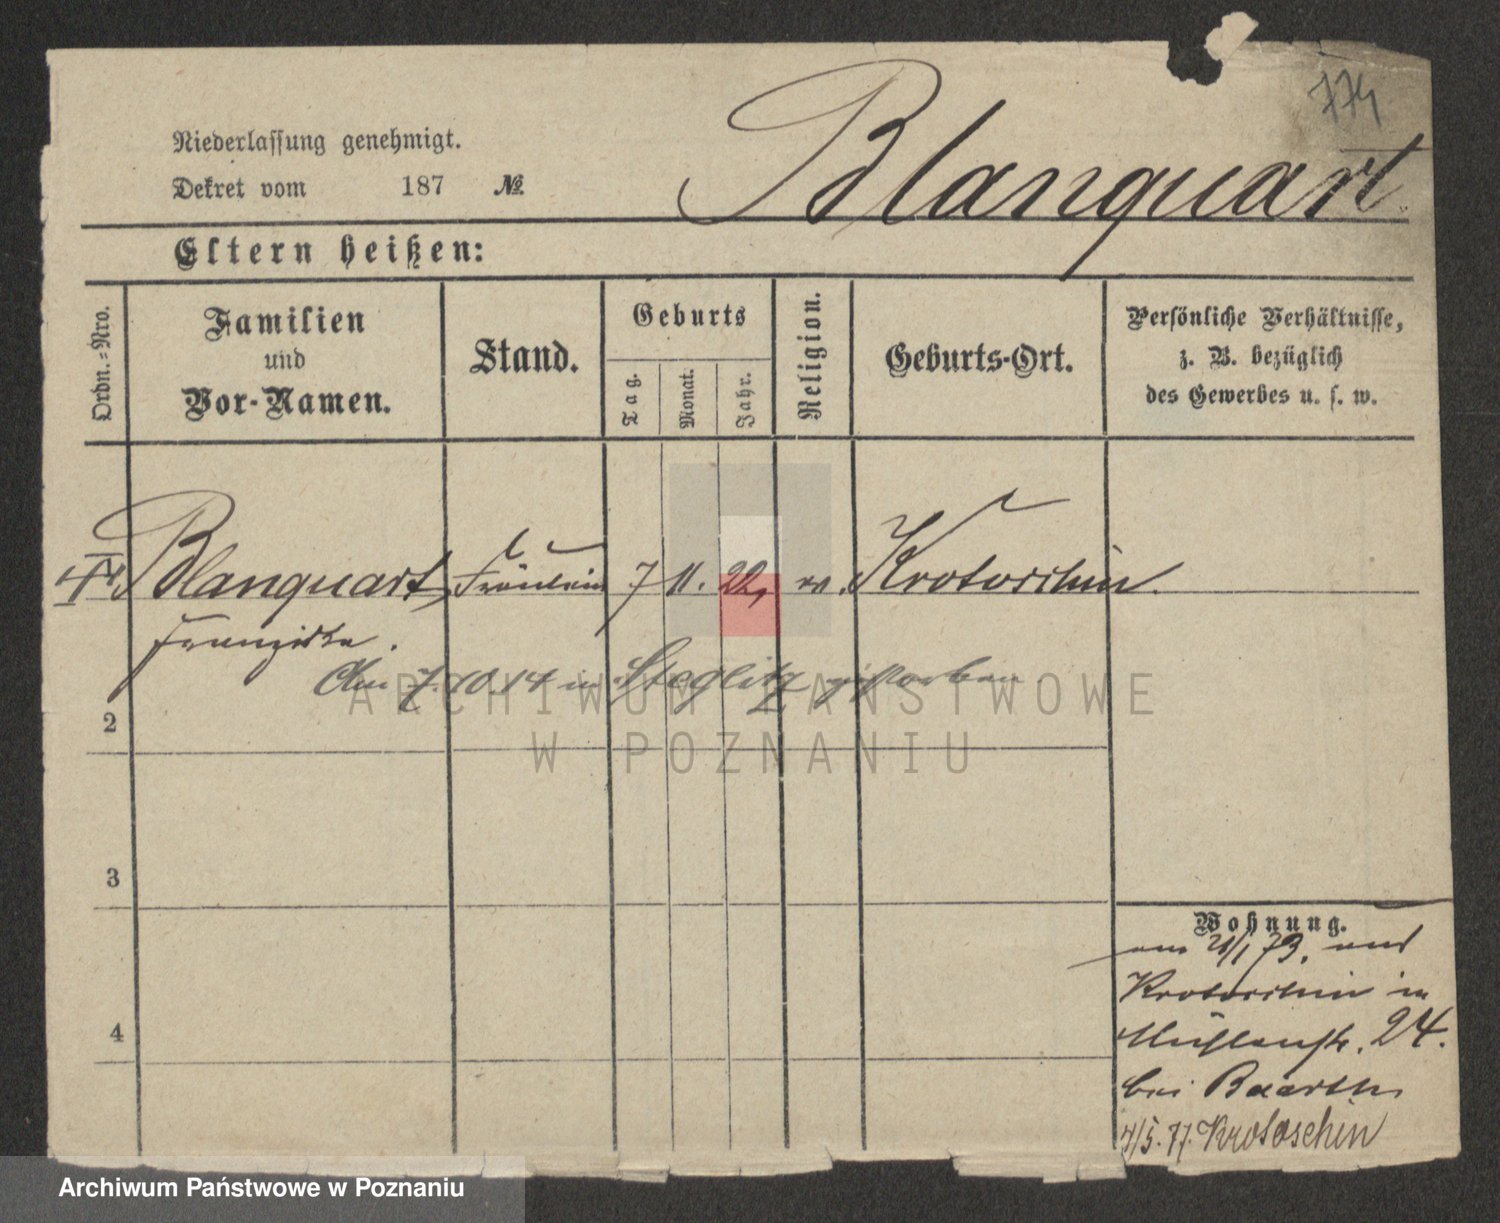 774
Niederlassung genehmigt.
Dekret vom 187 №
Blanquart
Eltern heißen:
Ordn.-Nro.
Familien
und
Vor-Namen.
Stand.
Geburts
Tag.
Monat.
Jahr.
Religion.
Geburts-Ort.
Persönliche Verhältnisse,
z. B. bezüglich
des Gewerbes u. s. w.
Blanquart, Fräulein 7 11. 22, ev. Krotoschin.
Franziska.
Am 7.10.14 in Steglitz gestorben
ARCHIWUM PAŃSTWOWE
W POZNANIU
2
3
4
Wohnung.
am 21/1 73. aus
Krotoschin in
Mühlenstr. 24.
bei Baarth
4/5. 77. Krotoschin
Archiwum Państwowe w Poznaniu